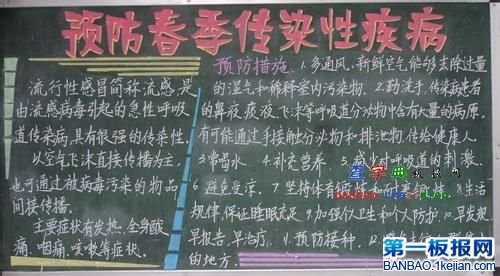 预防春季传染性疾病
流行性感冒简称流感,是
由流感病毒引起的急性呼吸
道传染病,具有很强的传染性。
以空气飞沫直接传播为主,
也可通过被病毒污染的物品
间接传播。
主要症状有发热、全身酸
痛、咽痛、咳嗽等症状。
预防措施、1.多通风、新鲜空气能够去除过量
的湿气和稀释室内污染物. 2.勤洗手、传染病患者
的鼻液、痰液、飞沫等呼吸道分泌物中含有大量的病原,
有可能通过手接触分泌物和排泄物,传给健康人.
3.常喝水. 4.补充营养. 5.减少对呼吸道的刺激.
6.避免受凉. 7.坚持体育锻炼和耐寒锻炼. 8.生活
规律,保证睡眠充足. 9.加强个人卫生和个人防护. 10.早发现.
早报告.早治疗. 11.预防接种. 12.
的地方.
查字典
第一板报网
BANBAO.1kejian.com